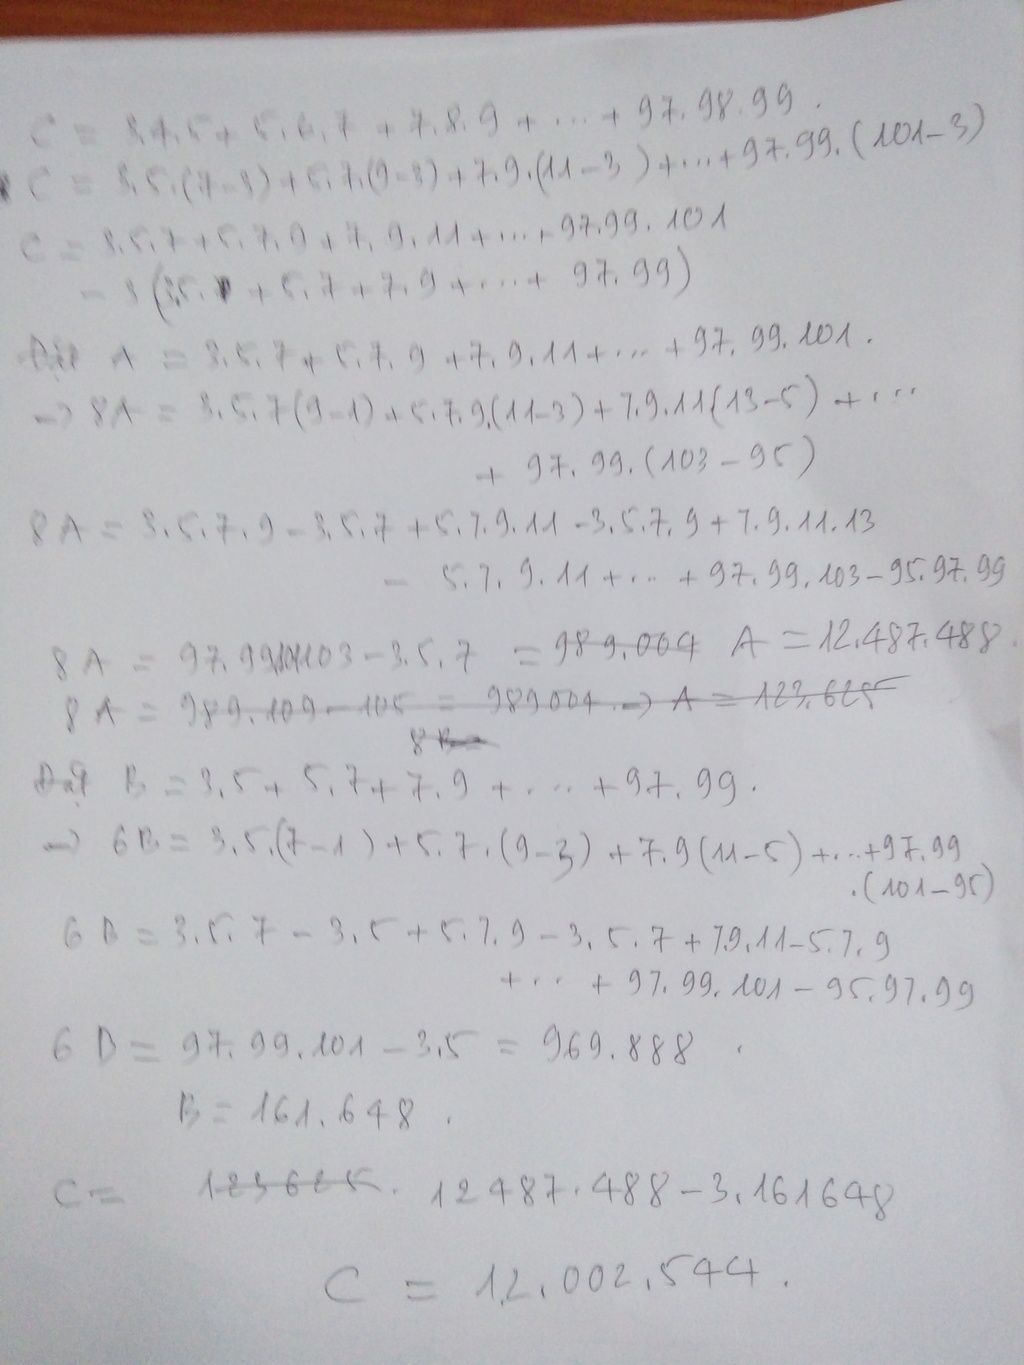 C = 3.4.5 + 5.6.7 + 7.8.9 + ... + 97.98.99.
C = 3.5.(7-3) + 5.7.(9-3) + 7.9.(11-3) + ... + 97.99.(101-3)
C = 3.5.7 + 5.7.9 + 7.9.11 + ... + 97.99.101
- 3(3.5. + 5.7 + 7.9 + ... + 97.99)
Đặt A = 3.5.7 + 5.7.9 + 7.9.11 + ... + 97.99.101.
-> 8A = 3.5.7(9-1) + 5.7.9.(11-3) + 7.9.11(13-5) + ...
+ 97.99.(103-95)
8A = 3.5.7.9 - 3.5.7 + 5.7.9.11 - 3.5.7.9 + 7.9.11.13
- 5.7.9.11 + ... + 97.99.103 - 95.97.99
8A = 97.99.101.103 - 3.5.7 = 989.004 A = 12.487.488.
8A = 989.109 - 105 = 989004 -> A = 123.625
8B
Đặt B = 3.5 + 5.7 + 7.9 + ... + 97.99.
-> 6B = 3.5.(7-1) + 5.7.(9-3) + 7.9(11-5) + ... + 97.99
.(101-95)
6B = 3.5.7 - 3.5 + 5.7.9 - 3.5.7 + 7.9.11 - 5.7.9
+ ... + 97.99.101 - 95.97.99
6B = 97.99.101 - 3.5 = 969.888.
B = 161.648.
C = 123625. 12487.488 - 3.161648
C = 12.002.544.